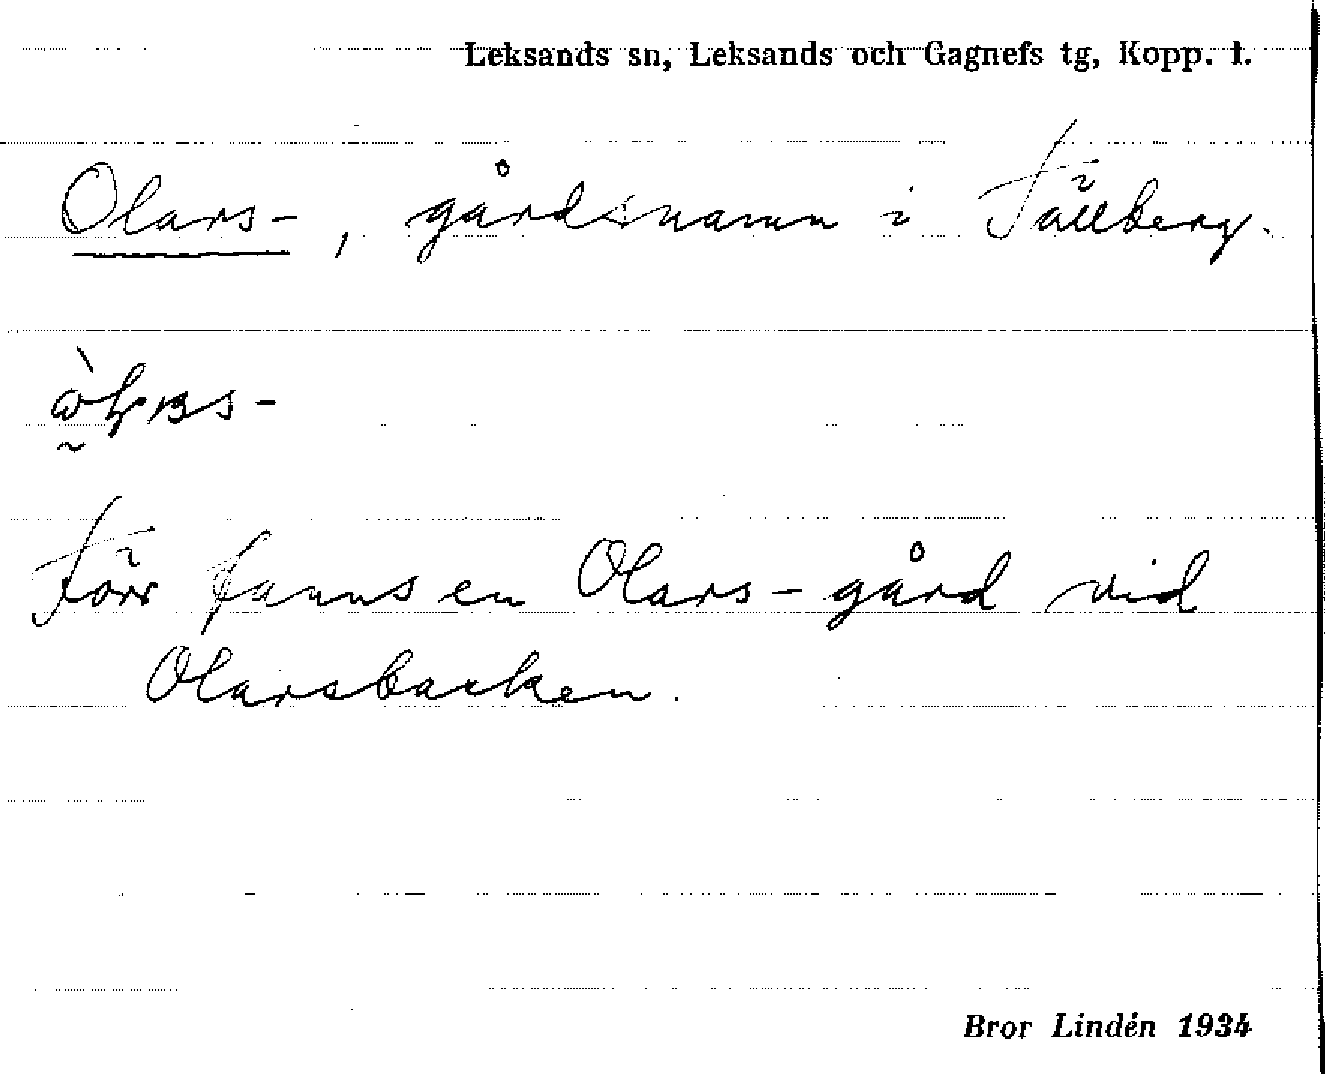 Leksands sn, Leksands och Gagnefs tg, Kopp. l.
Olars-, gårdsnamn i Tällberg.
Förr fanns en Olars-gård vid
Olarsbacken.
Bror Lindén 1934